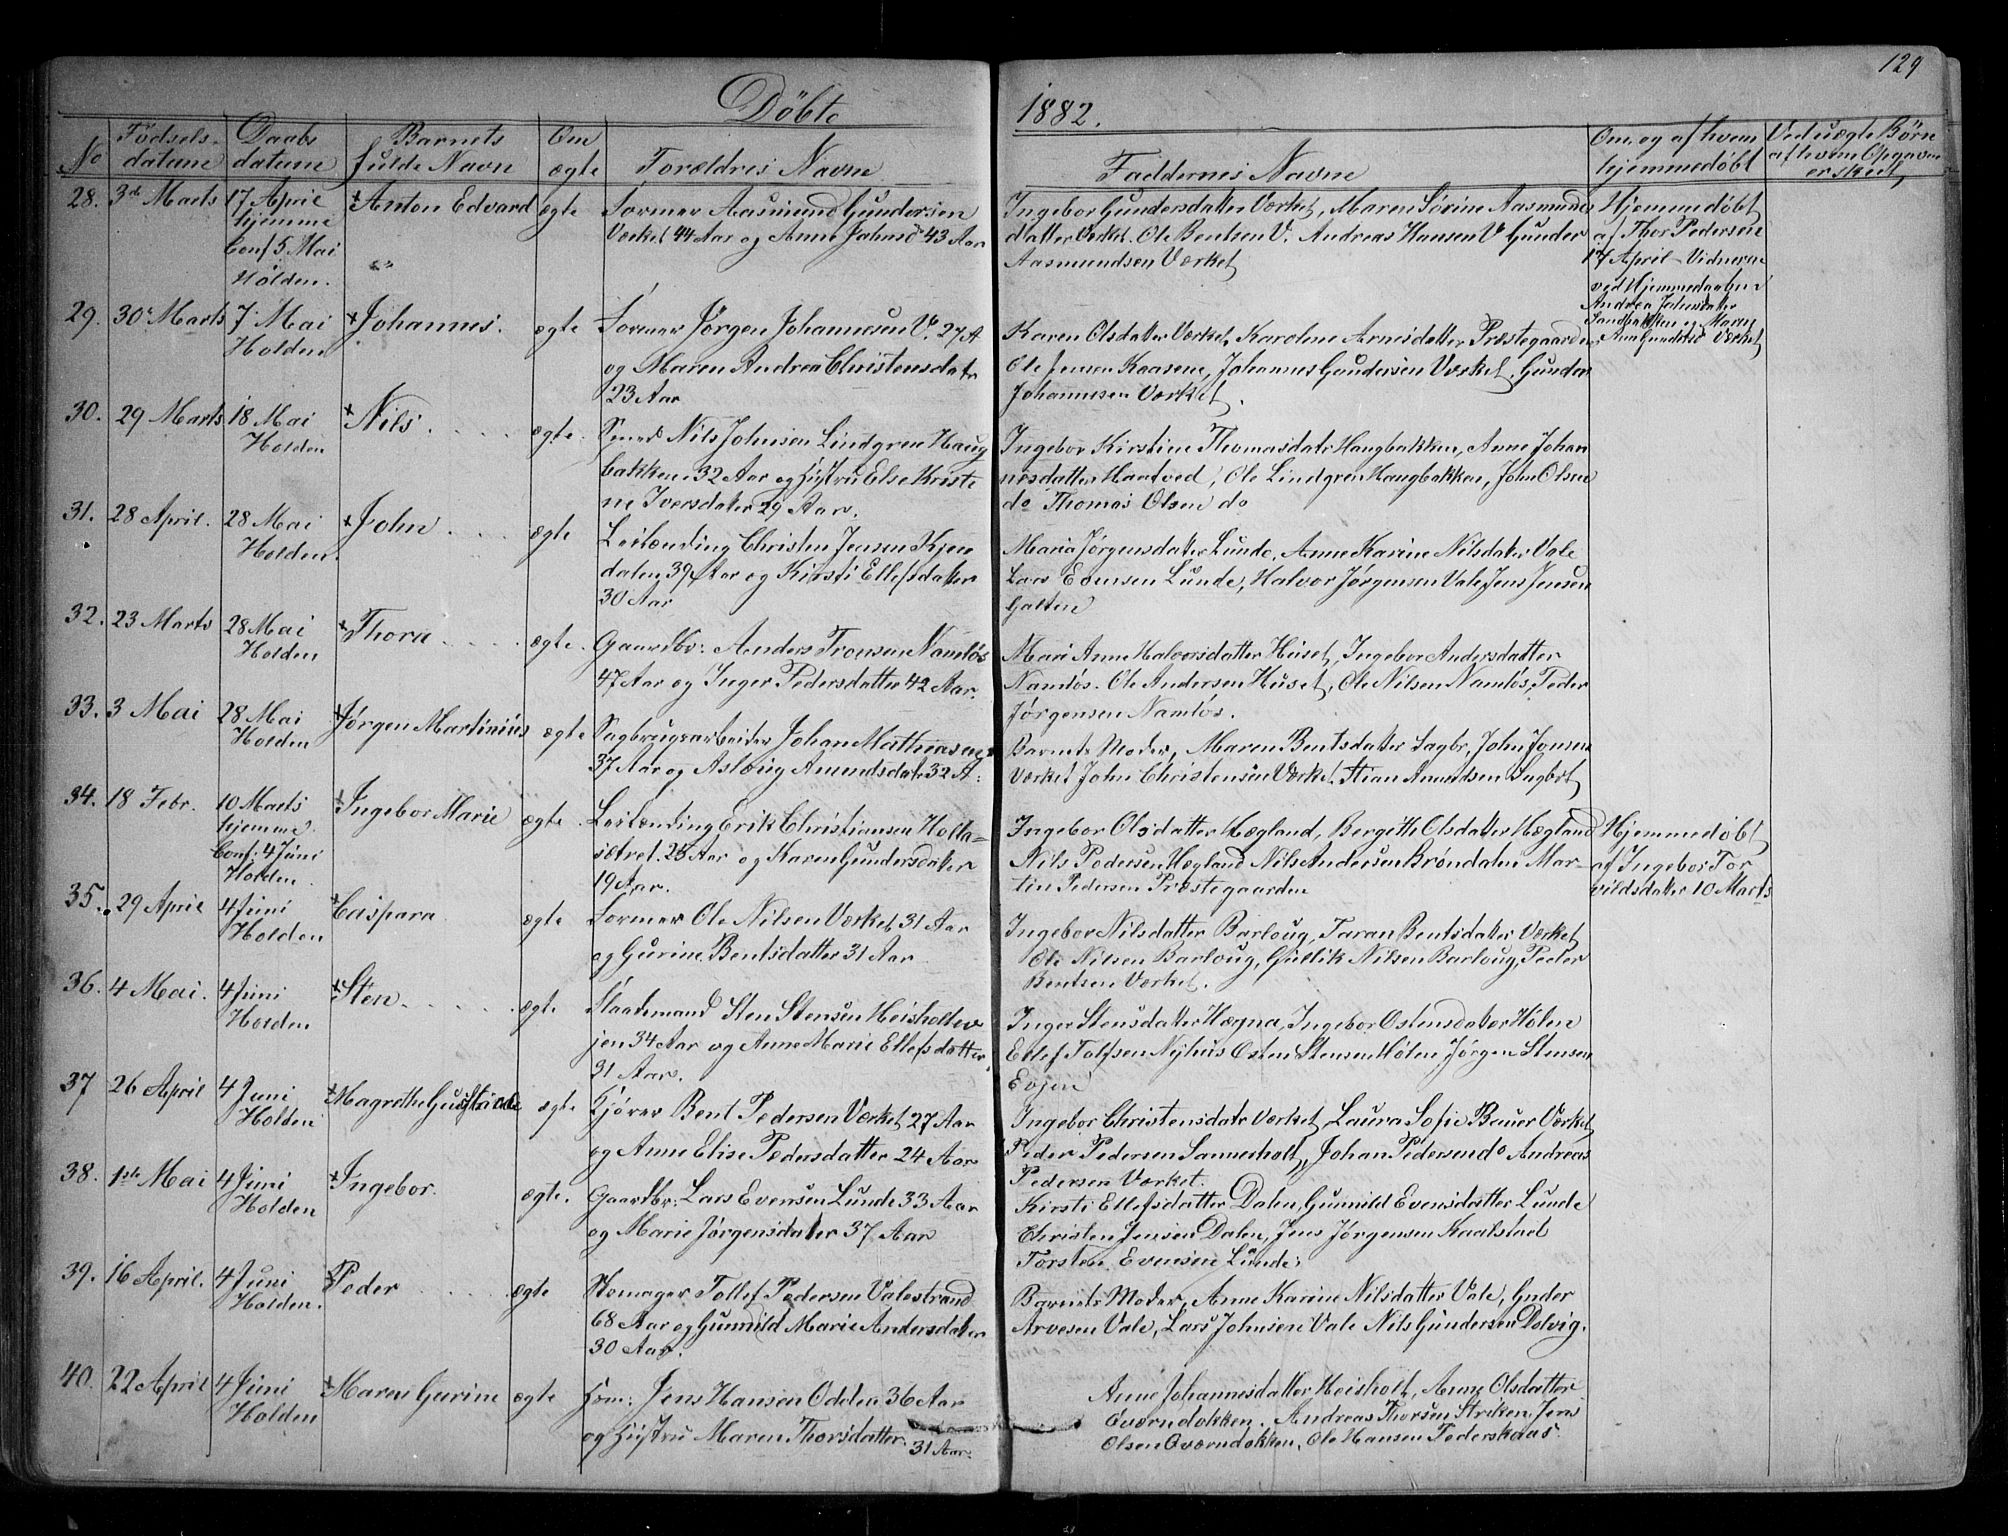 129
Döbte 1882.
No
Fødsels-
datum
Daabs
datum
Barnets
fulde Navn
Om
ægte
Forældres Navne
Faddernes Navne
Om og af hvem
hjemmedøbt
Ved uægte Børn
af hvem Opgaven
er skeet
28. 3de Marts
17 April
hjemme
Conf. 5 Mai
Holden.
Anton Edvard
ægte
Former Aasmund Gundersen
Værket 44 Aar og Anne Johnsd 43 Aar
Ingebor Gundersdatter Værket, Maren Sørine Aasmunds
datter Værket. Ole Bentsen V. Andreas Hansen V Gunder
Aasmundsen Værket
Hjemmedøbt
af Thor Pedersen
17 April - Vidnerne
ved Hjemmedaaben
Andrea Johnsdatter
og Maren
Værket
29. 30te Marts
7 Mai
Holden
Johannes.
ægte
Former Jørgen Johannesen V. 27 A
og Maren Andrea Christensdatr
23 Aar
Karen Olsdatter Værket, Karoline Arnesdatter Præstegaarden
Ole Jensen Kaasene, Johannes Gundersen Værket, Gunder
Johannesen Værket.
30. 29 Marts
18 Mai
Holden
Nils.
ægte.
Smed Nils Johnsen Lindgren Haug
bakken 32 Aar og Hustru Else Kirsti
ne Iversdater 29 Aar.
Ingebor Kirstine Thomasdatr Haugbakken, Anne Johan
nesdatter Haatved, Ole Lindgren Haugbakken, John Olsen
do Thomas Olsen do
31. 28 April.
28 Mai
Holden.
John
ægte
Leilænding Christen Jensen Kjen
dalen 39 Aar og Kirsti Ellefsdatter
30 Aar
Maria Jørgensdatter Lunde, Anne Karine Nilsdater Vale
Lars Evensen Lunde, Halvor Jørgensen Vale, Jens Jensen
Galten
32. 23 Marts
28 Mai
Holden
Thora
ægte.
Gaardbr: Anders Tronsen Namløs
47 Aar og Inger Pedersdatter 42 Aar.
Mari Anne Halvorsdatter Huset, Ingebor Andersdatter
Namløs. Ole Andersen Huset, Ole Nilsen Namløs, Peder
Jørgensen Namløs.
33. 3 Mai
28 Mai
Holden
Jørgen Martinius
ægte
Sagbrugsarbeider Johan Mathiasen
37 Aar og Aslaug Amundsdatr 32 A.
Barnets Moder, Maren Bentsdatter Sagbr, John Jonsen
Værket John Christensen Værket. Stian Amundsen Sagbrt
34. 18 Febr.
10 Marts
hjemme
Conf: 4 Juni
Holden
Ingebor Marie
ægte.
Leilænding Erik Christiansen Holta-
sætret. 25 Aar og Karen Gundersdater
19 Aar.
Ingebor Olsdatter Hægland, Bergithe Olsdatter Hægland
Nils Pedersen Hægland Nils Andersen Brøndalen Mar-
tin Pedersen Præstegaarden
Hjemmedøbt
af Ingebor Tor
vildsdater 10 Marts
35. 29 April
4 Juni
Holden
Caspara
ægte
Former Ole Nilsen Værket 31 Aar
og Gurine Bentsdatter 31 Aar
Ingebor Nilsdatter Barloug, Taran Bentsdater Værket
Ole Nilsen Barloug, Gullik Nilsen Barloug, Peder
Bentsen Værket.
36. 4 Mai.
4 Juni
Holden
Sten
ægte
Pladsmand Sten Stensen Heisholtev
jen 34 Aar og Anne Marie Ellefsdatter
31 Aar.
Inger Stensdatter Hægna, Ingebor Ostensdater Hølen
Ellef Tolfsen Nyhus Osten Stensen Hølen Jørgen Stensen
Evjen
37 26 April
4 Juni
Holden
Magrethe
ægte
Kjører Bent Pedersen Værket 27 Aar
og Anne Elise Pedersdatter 24 Aar
Ingebor Christensdatr Værket, Laura Sofie Bauer Værket,
Peder Pedersen Sannesholt, Johan Pedersen do Andreas
Pedersen Værket.
38. 1ste Mai
4 Juni
Holden
Ingebor.
ægte.
Gaardbr: Lars Evensen Lunde 33 Aar
og Marie Jørgensdater 37 Aar
Kirsti Ellefsdatter Dalen, Gunnild Evensdatter Lunde
Christen Jensen Dalen, Jens Jørgensen Kaalstad
Torsten Evensen Lunde.
39. 16 April.
4 Juni
Holden.
Peder
ægte
Skomager Tollef Pedersen Valestrand
68 Aar og Gunnild Marie Andersdater
30 Aar.
Barnets Moder, Anne Karine Nilsdatter Vale, Gunder
Arvesen Vale, Lars Johnsen Vale Nils Gundersen Dolvig.
40. 22 April
4 Juni
Holden
Maren Gurine
ægte
Hsm: Jens Hansen Odden 36 Aar
og Hustru Maren Thorsdatter
31 Aar.
Anne Johannesdatter Heisholt, Anne Olsdatter
Qværndokken. Andreas Thorsen Striken, Jens
Olsen Qværndokken, Ole Hansen Pederskaas.